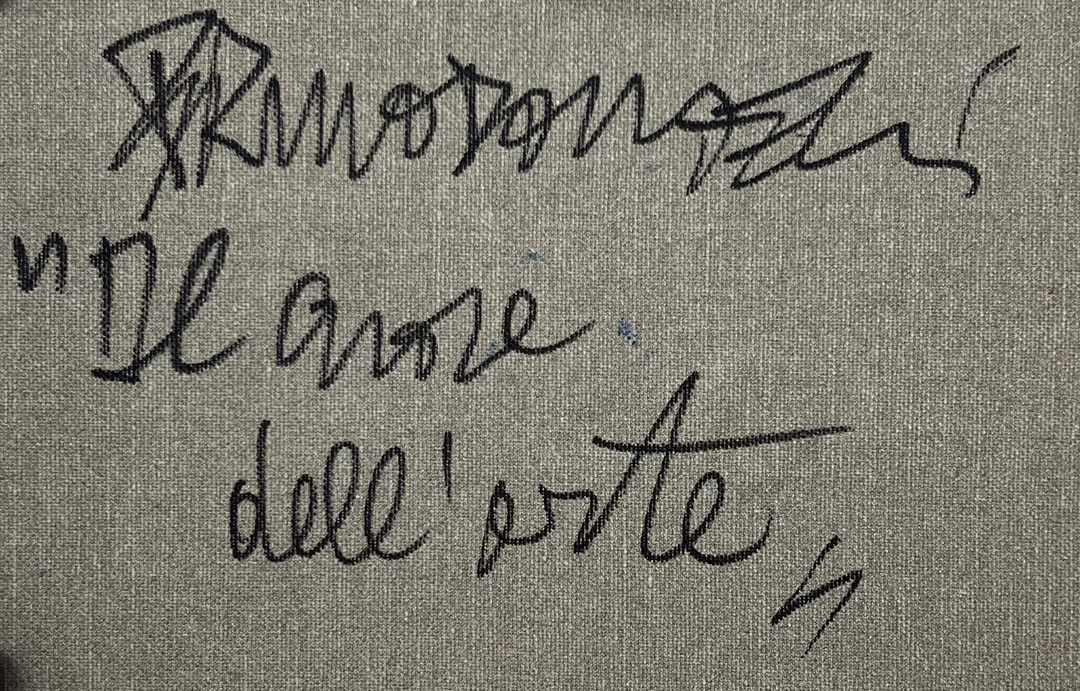 Bruno Donzelli
"Il Cuore
dell'arte"